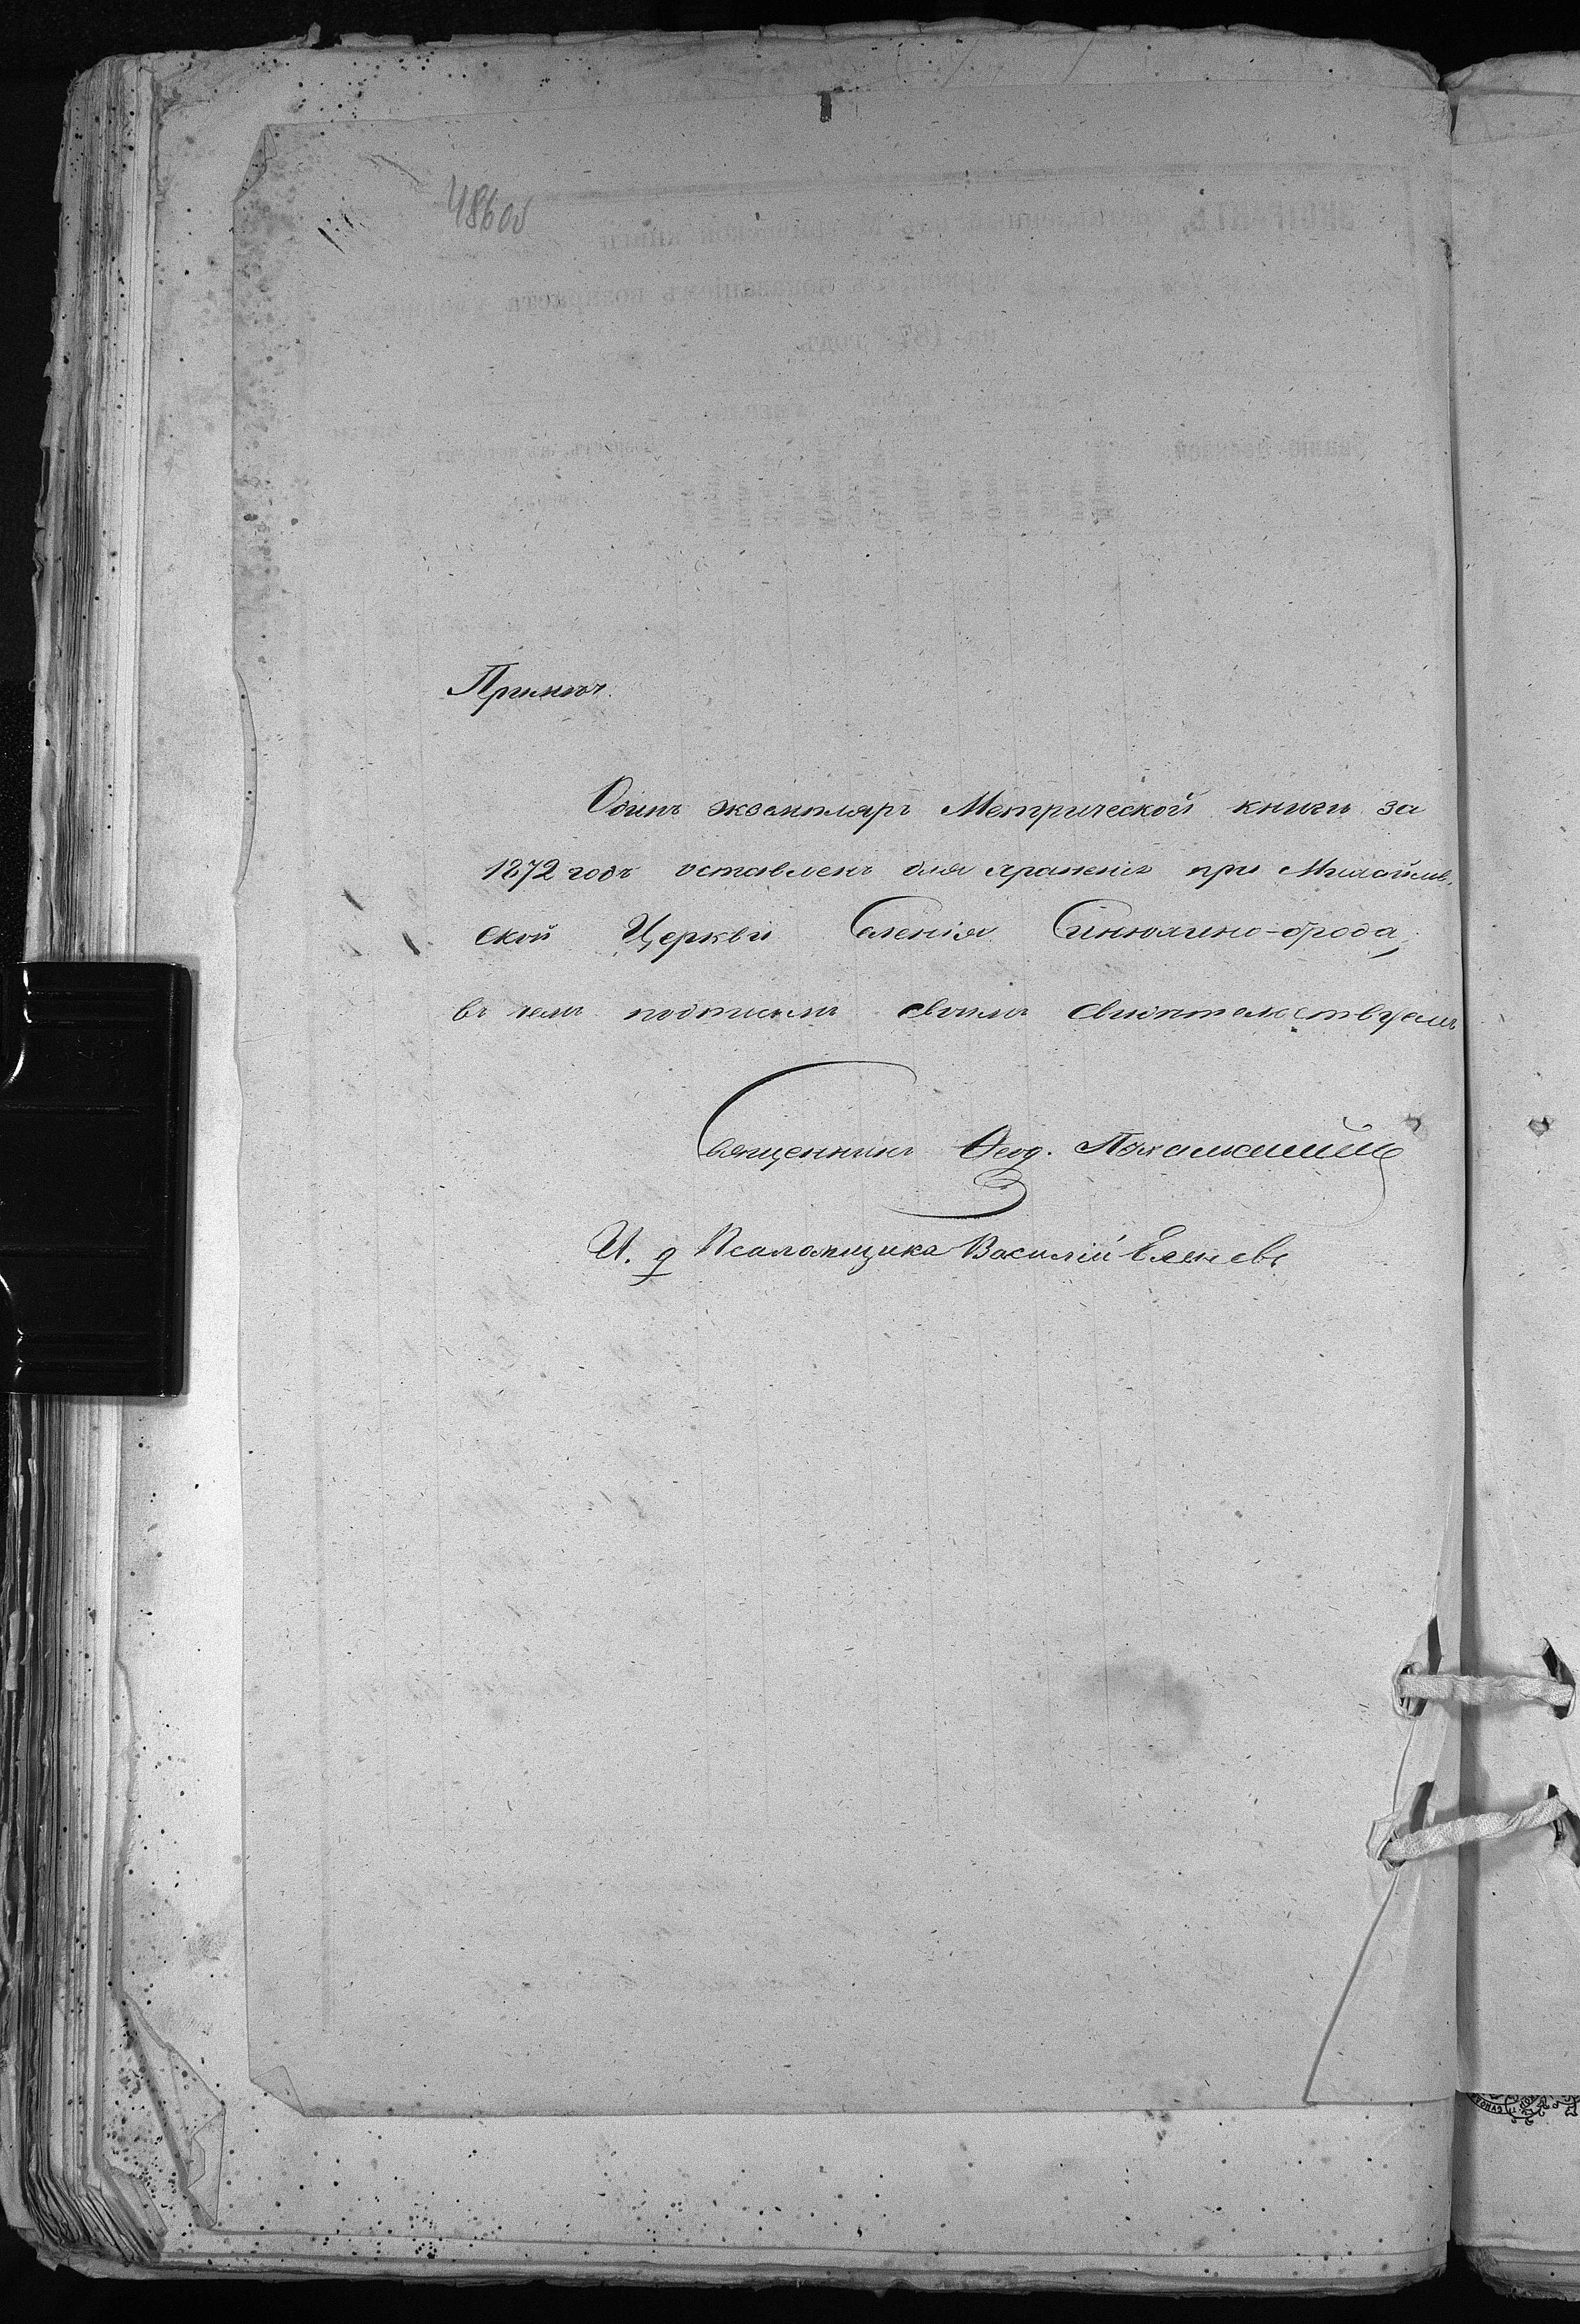 486об
Примѣч.
Одинъ экземпляръ Метрической книги за
1872 годъ оставленъ для храненія при Михайлов-
ской Церкви Селенія Синюхино-брода,
въ чемъ подписомъ своимъ свидѣтельствуемъ
Священникъ Ѳеод.
И. д Псаломщика Василій